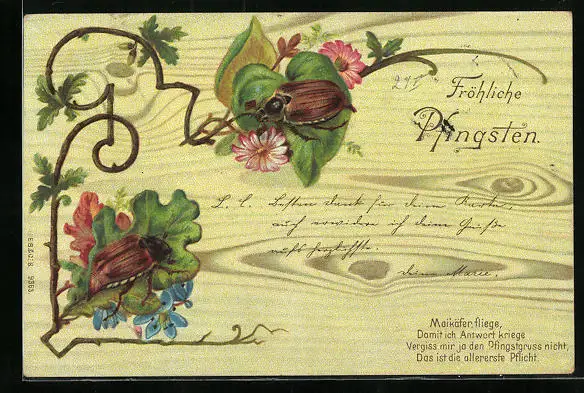 Fröhliche
Pfingsten.
L. L. Besten dank für deine Karte,
auch erwidere ich deine Grüße
aufs herzlichste
deine Marie.
Maikäfer, fliege,
Damit ich Antwort kriege
Vergiss mir ja den Pfingstgruss nicht,
Das ist die allererste Pflicht.